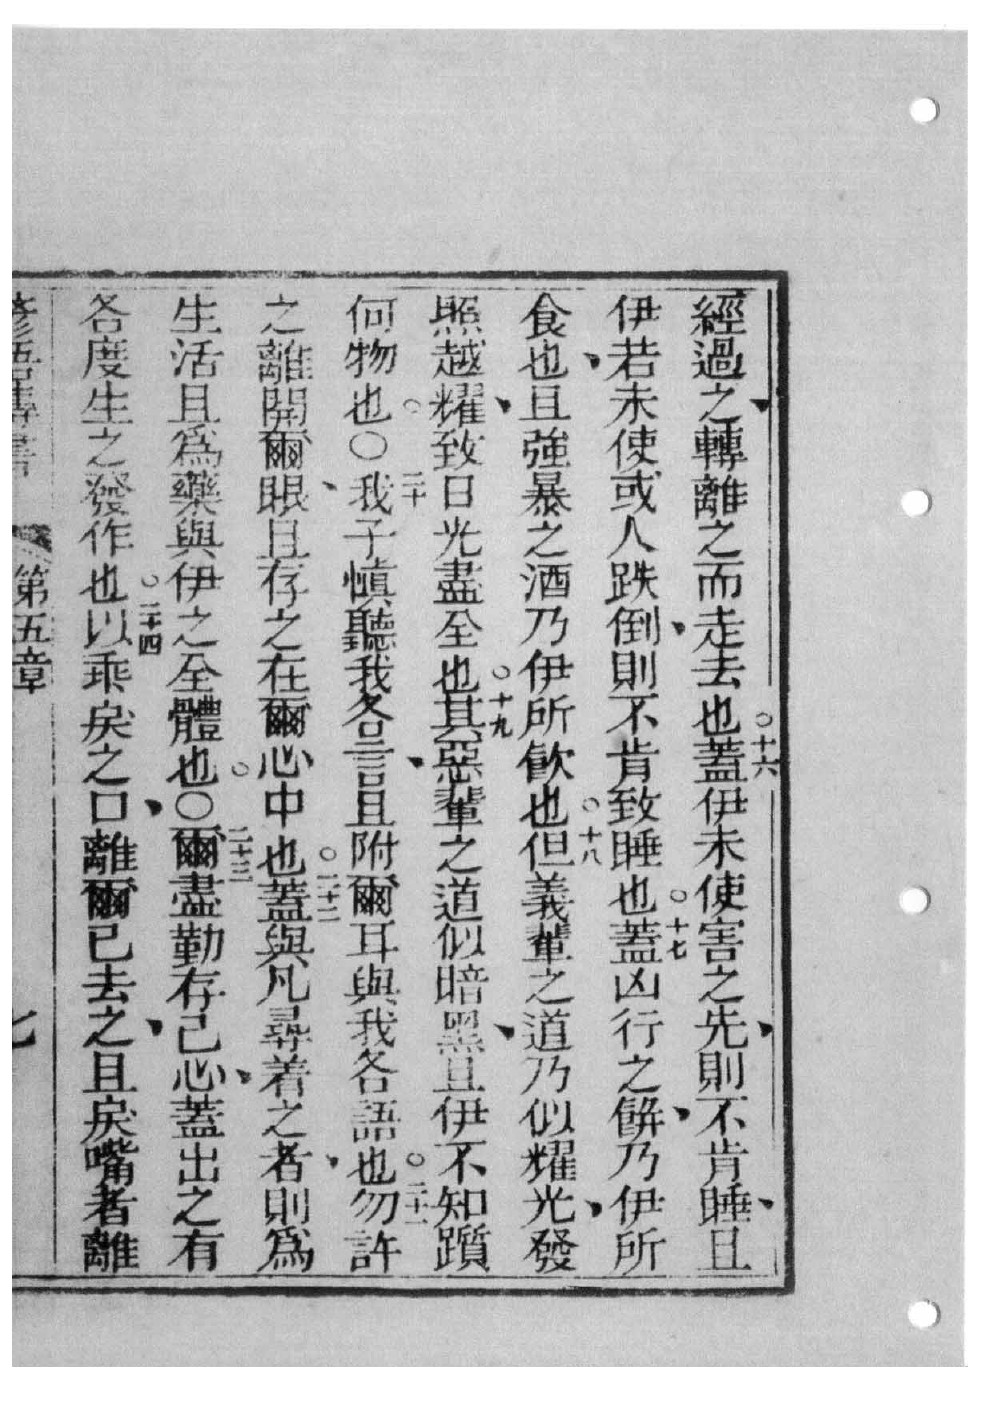 經過之轉離之而走去也。十六蓋伊未使害之先則不肯睡且
伊若未使或人跌倒則不肯致睡也。十七蓋凶行之餅乃伊所
食也且強暴之酒乃伊所飲也。十八但義輩之道乃似耀光發
照越耀致日光盡全也。十九其惡輩之道似暗黑且伊不知躓
何物也。○二十我子慎聽我各言且附爾耳與我各語也。二十一勿許
之離開爾眼且存之在爾心中也。二十二蓋與凡尋着之者則為
生活且為藥與伊之全體也。○二十三爾盡勤存己心蓋出之有
各度生之發作也。二十四以乖戾之口離爾已去之且戾嘴者離
第五章